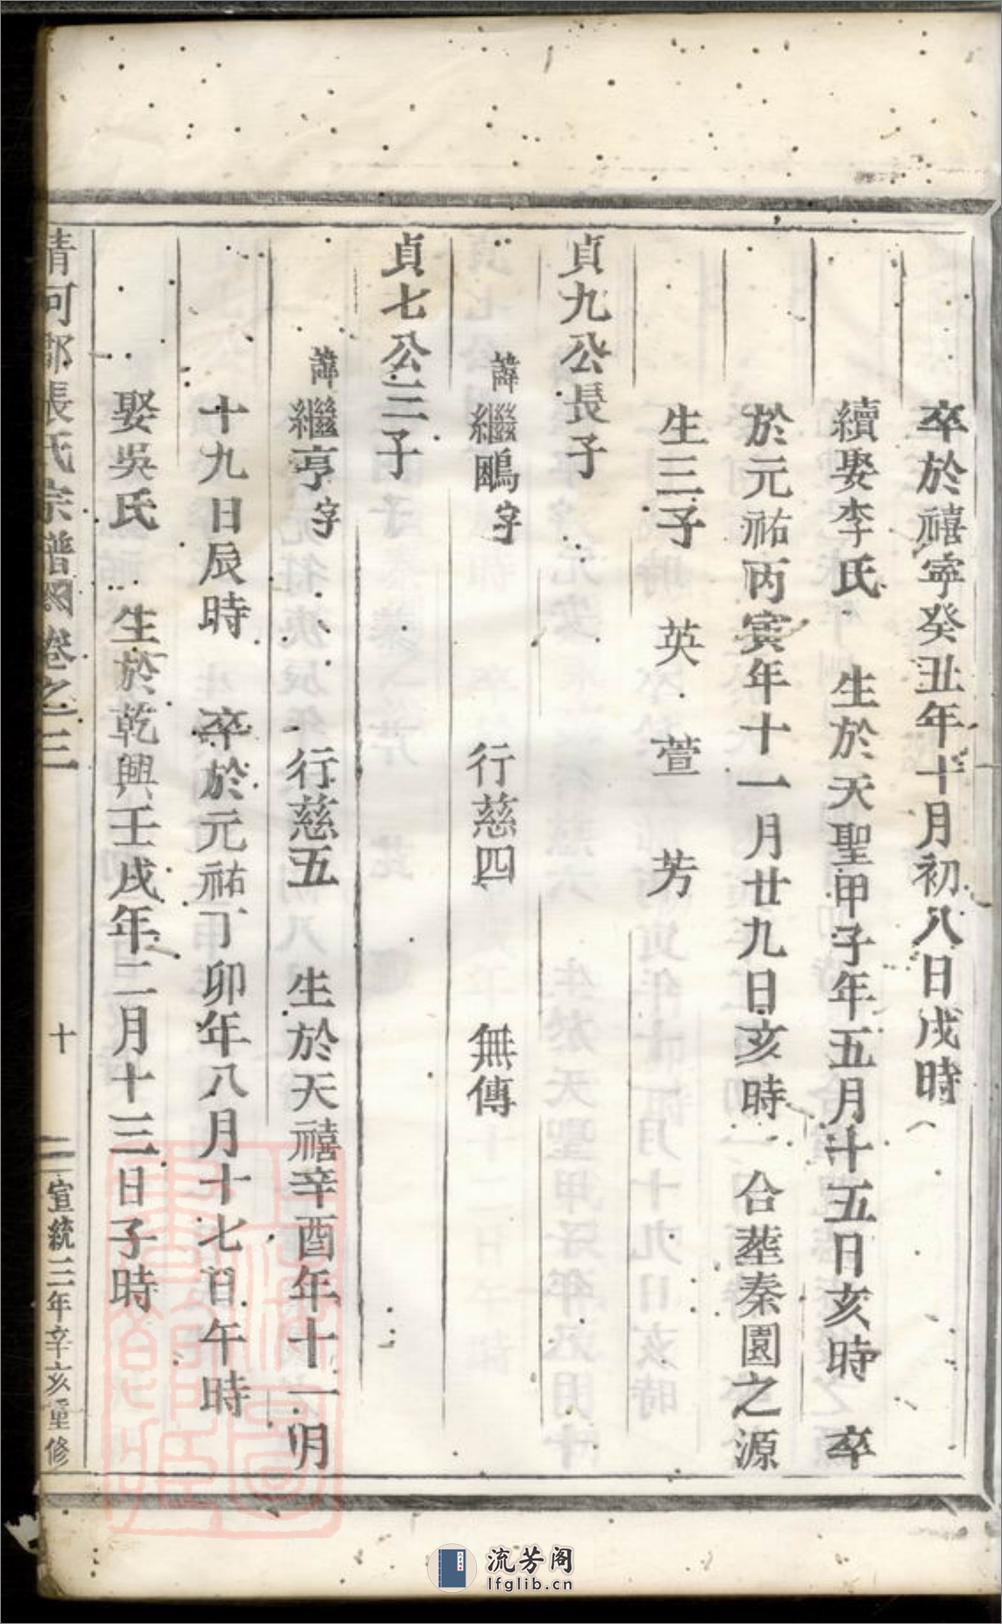 卒於禧寧癸丑年十月初八日戌時
續娶李氏 生於天聖甲子年五月十五日亥時 卒
於元祐丙寅年十一月廿九日亥時 合葬秦園之源
生三子 英 萱 芳
貞九公長子
諱繼鵰字 行慈四 無傳
貞七公三子
諱繼亨字 行慈五 生於天禧辛酉年十一月
十九日辰時 卒於元祐丁卯年八月十七日午時
娶吳氏 生於乾興壬戌年二月十三日子時
清河郡張氏宗譜 卷之三 十 宣統三年辛亥重修
流芳阁
lfglib.cn